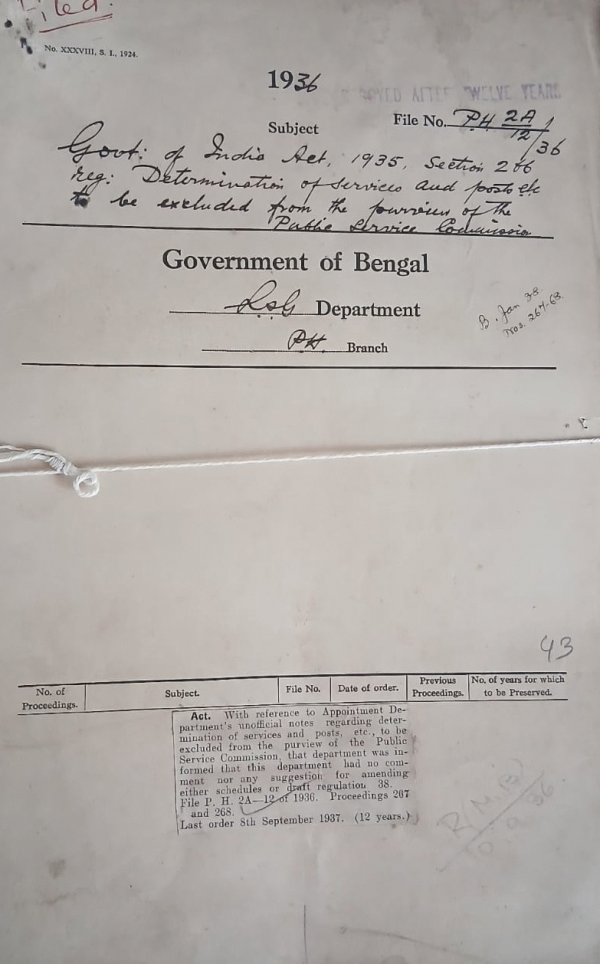 Filed.
No. XXXVIII, S. I., 1924.
1936
AFTER TWELVE YEARS
File No. P.H. 2A/12 1/36
Subject
Govt: of India Act, 1935, Section 266
reg: Determination of services and posts etc
to be excluded from the purview of the
Public Service Commission
Government of Bengal
Department
P.H. Branch
B. Jan 38
Nos. 267-68.
43
No. of Proceedings. Subject. File No. Date of order. Previous Proceedings. No. of years for which to be Preserved.
Act. With reference to Appointment De-
partment's unofficial notes regarding deter-
mination of services and posts, etc., to be
excluded from the purview of the Public
Service Commission, that department was in-
formed that this department had no com-
ment nor any suggestion for amending
either schedules or draft regulation 38.
File P. H. 2A—12 of 1936. Proceedings 267
and 268.
Last order 8th September 1937. (12 years.)